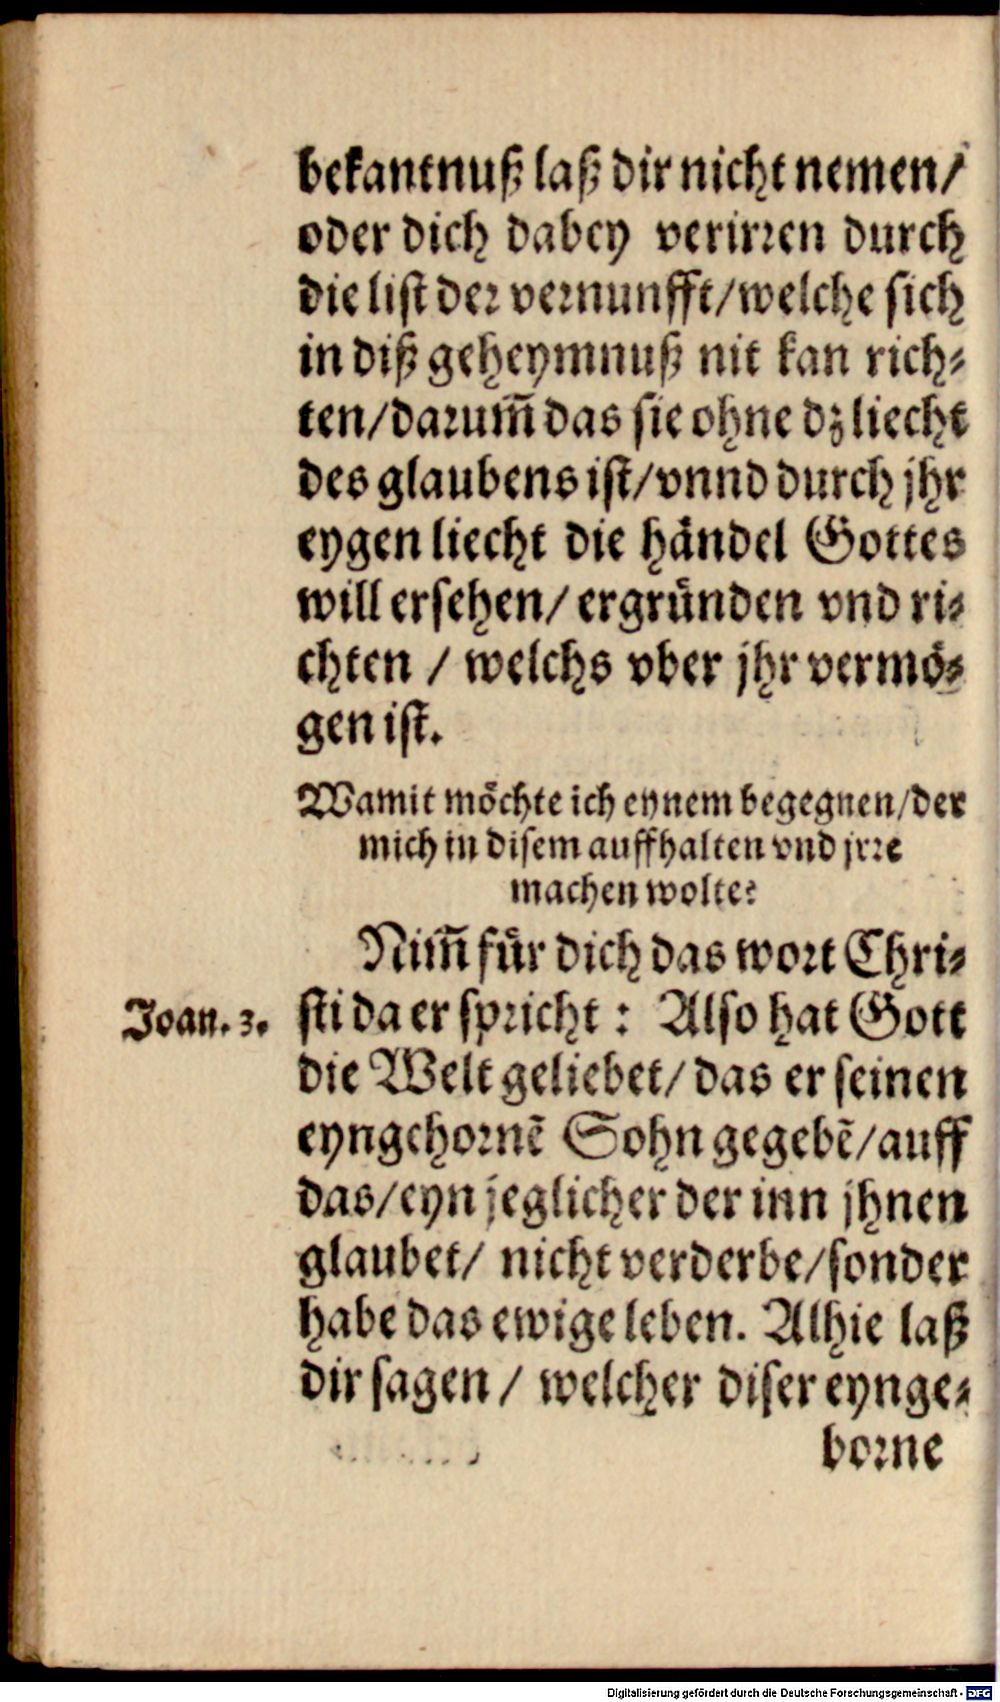 bekantnuß laß dir nicht nemen/
oder dich dabey verirren durch
die list der vernunfft/welche sich
in diß geheymnuß nit kan rich⸗
ten/darum̃ das sie ohne dz liecht
des glaubens ist/vnnd durch jhr
eygen liecht die händel Gottes
will ersehen/ ergründen vnd ri⸗
chten / welchs vber jhr vermö⸗
gen ist.
Wamit möchte ich eynem begegnen/der
mich in disem auffhalten vnd jrre
machen wolte?
Nim̃ für dich das wort Chri⸗
Joan. 3. sti da er spricht : Also hat Gott
die Welt geliebet/ das er seinen
eyngebornẽ Sohn gegebẽ/auff
das/eyn jeglicher der inn jhnen
glaubet/ nicht verderbe/sonder
habe das ewige leben. Alhie laß
dir sagen / welcher diser eynge⸗
borne
Digitalisierung gefördert durch die Deutsche Forschungsgemeinschaft - DFG